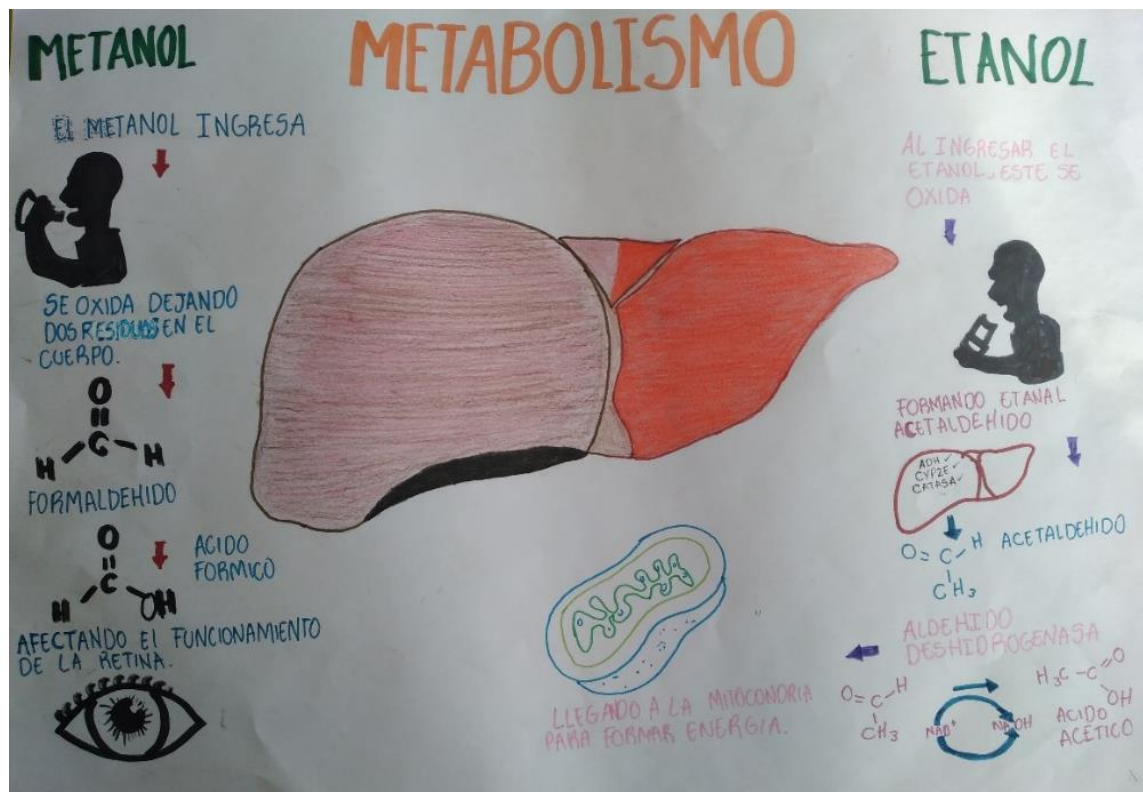 METABOLISMO
METANOL
EL METANOL INGRESA
SE OXIDA DEJANDO
DOS RESIDUOS EN EL
CUERPO.
O
C
H
H
FORMALDEHIDO
O
C
H
OH
ACIDO
FORMICO
AFECTANDO El FUNCIONAMIENTO
DE LA RETINA.
ETANOL
AL INGRESAR EL
ETANOL, ESTE SE
OXIDA
FORMANDO ETANAL
ACETALDEHIDO
ADH ✓
CYP2E ✓
CATASA ✓
O=C-H
CH3
ACETALDEHIDO
ALDEHIDO
DESHIDROGENASA
O=C-H
CH3
NAD+
NADH
H3C-C=O
OH
ACIDO
ACÉTICO
LLEGADO A LA MITOCONDRIA
PARA FORMAR ENERGÍA.